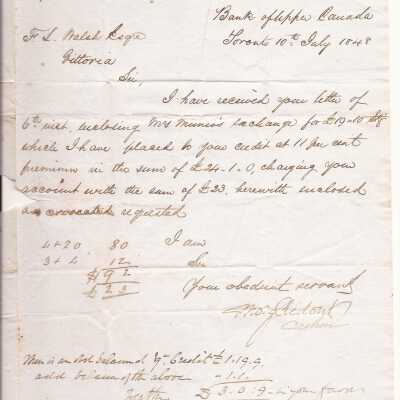 Bank of Upper Canada
Toronto 10th July 1848
F. L. Walsh Esqre
Vittoria
Sir,
I have received your letter of
6th inst. inclosing Mrs exchange for £19-10 Stg
which I have placed to your credit at 11 per cent
premium in the sum of £24-1-0, charging your
account with the sum of £23. herewith inclosed
as requested
4 + 20 80 I am
3 + 4 12 Sir
$92
£23 Your obedient servant
Cashier
There is an old balance of Credit £1.19.9
add balance of the above 1.1.
£3.0.9 in your favor